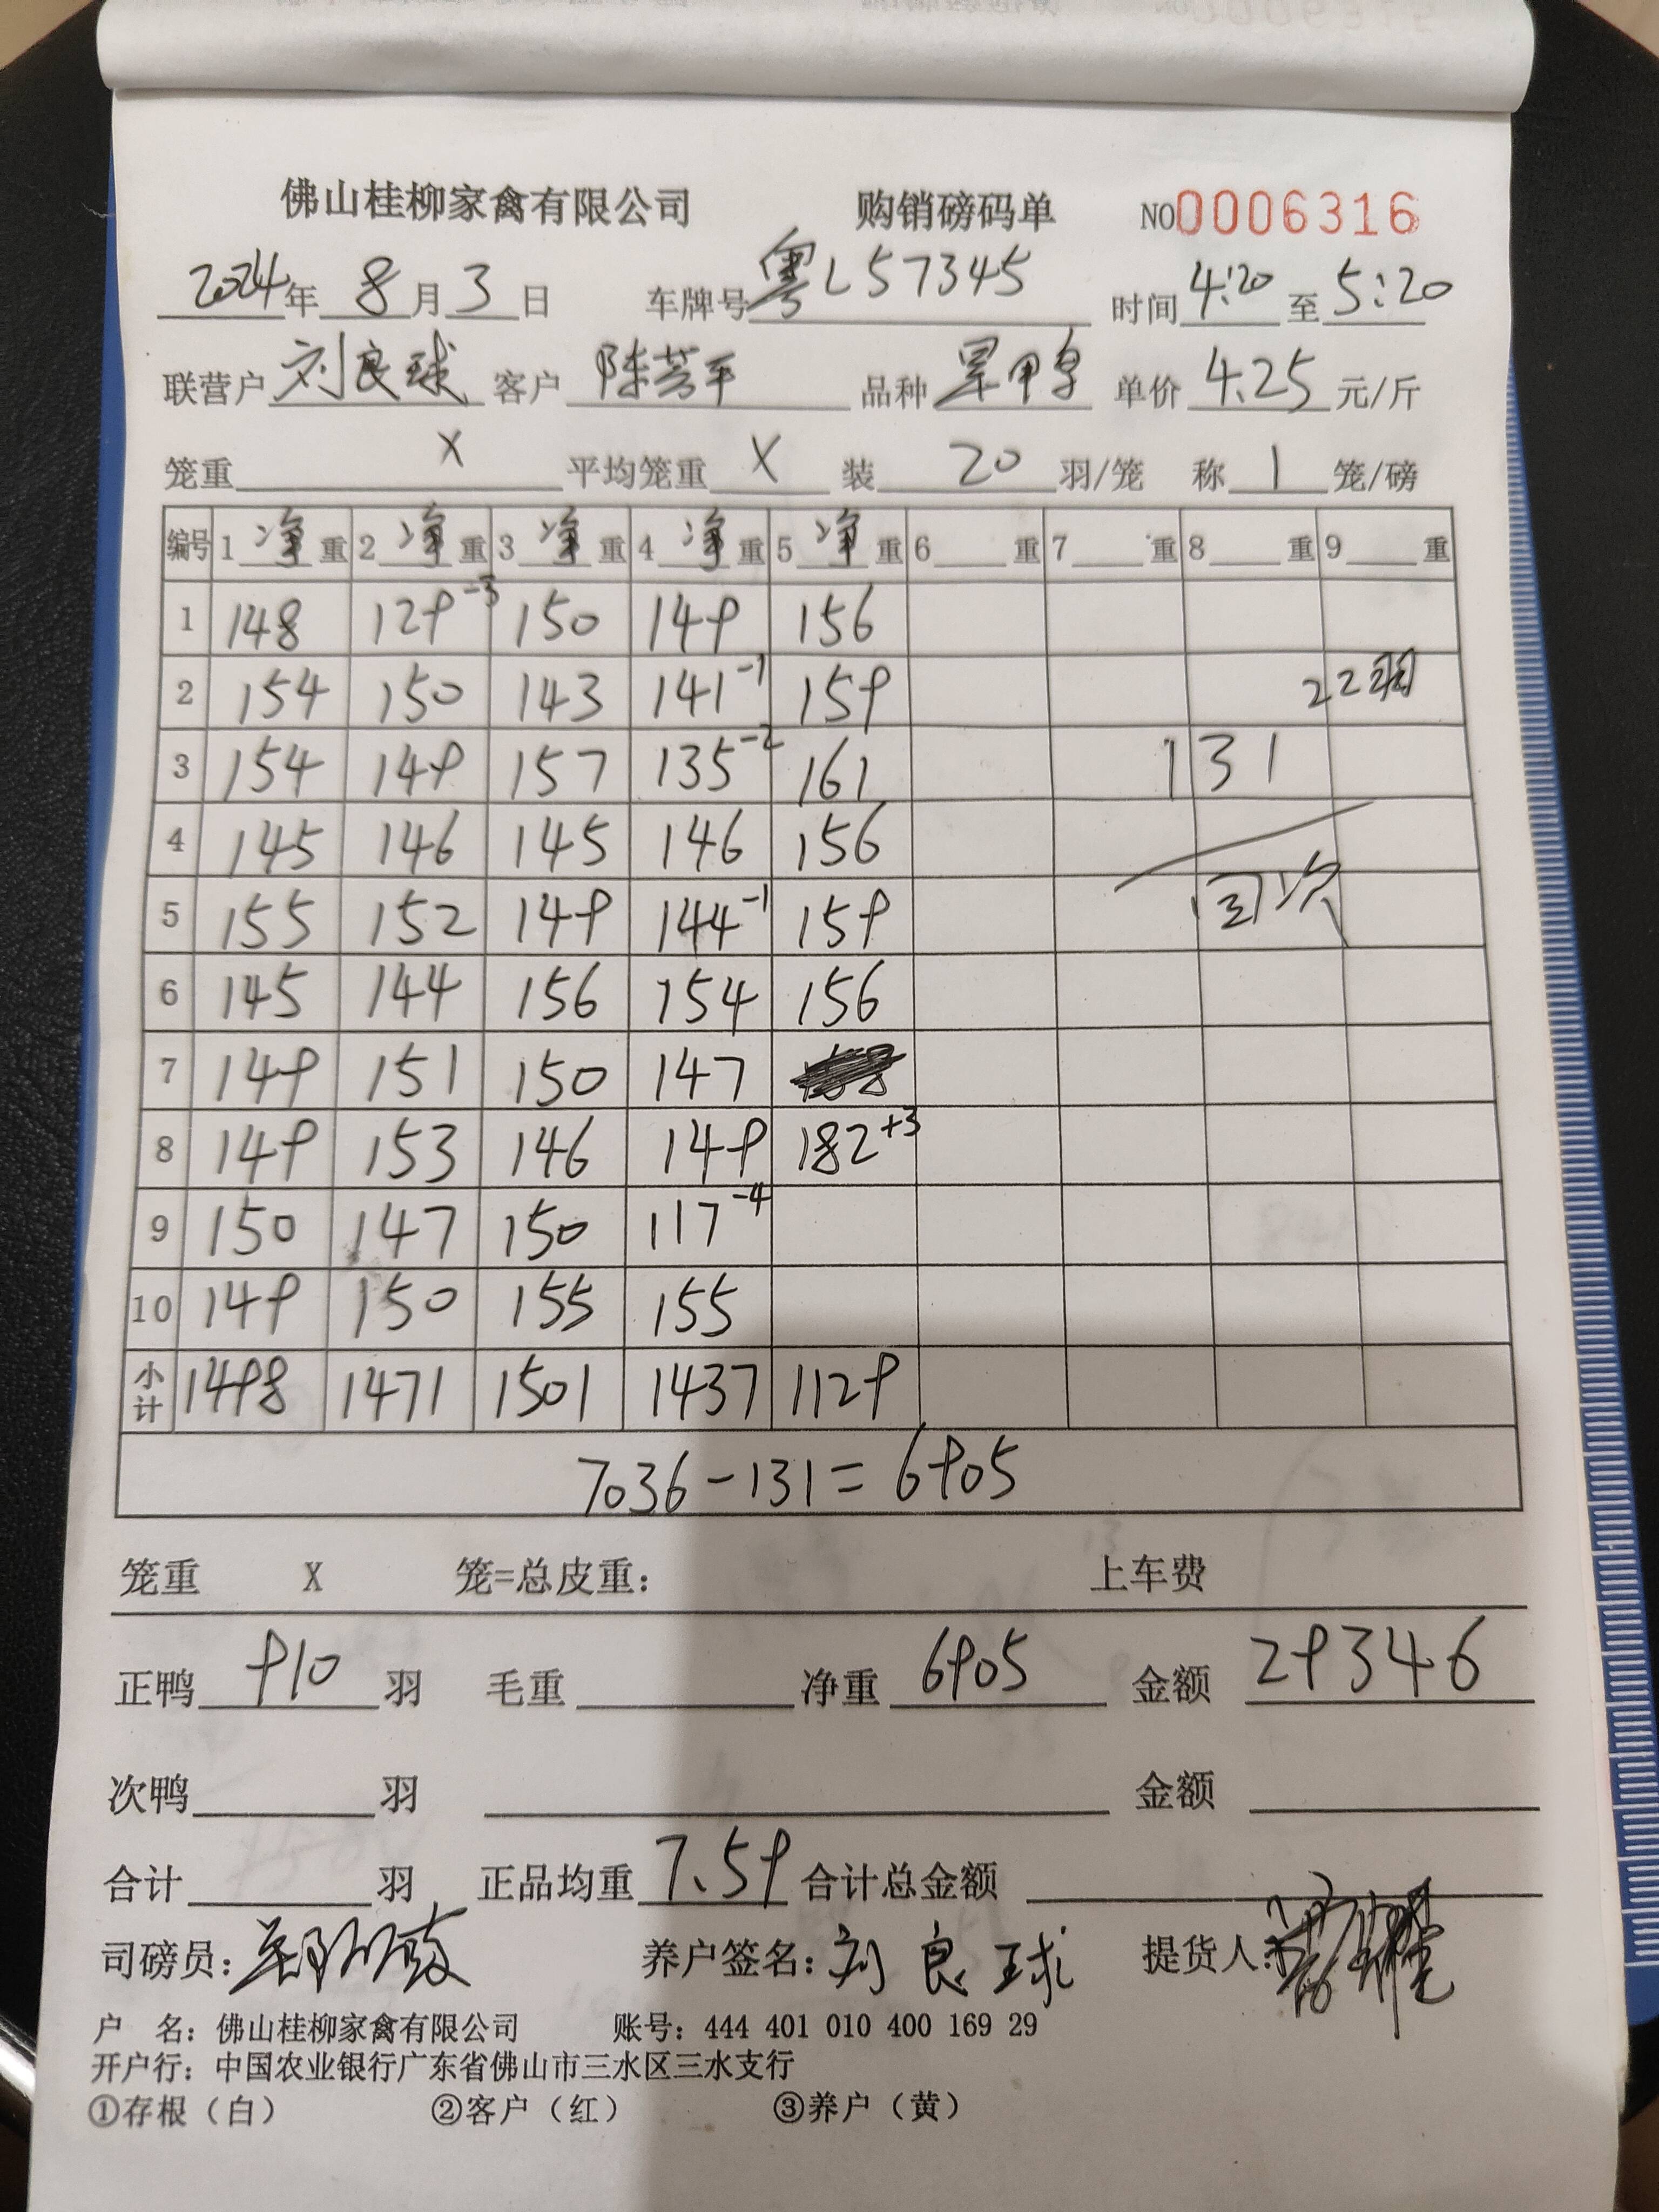 佛山桂柳家禽有限公司 购销磅码单 NO0006316
2024年 8月3日 车牌号粤L57345 时间4:20至5:20
联营户刘良球 客户陈芳平 品种旱鸭 单价4.25元/斤
笼重 X 平均笼重 X 装 20 羽/笼 称 1 笼/磅
编号 1净重 2净重 3净重 4净重 5净重 6 重 7 重 8 重 9 重
1 148 129-3 150 149 156
2 154 150 143 141-1 159 22羽
3 154 149 157 135-2 161 131
4 145 146 145 146 156
5 155 152 149 144-1 159 回次
6 145 144 156 154 156
7 149 151 150 147
8 149 153 146 149 182+3
9 150 147 150 117-4
10 149 150 155 155
小计 1498 1471 1501 1437 1129
7036-131=6905
笼重 X 笼=总皮重: 上车费
正鸭 910 羽 毛重 净重 6905 金额 29346
次鸭 羽 金额
合计 羽 正品均重 7.59 合计总金额
司磅员: 养户签名:刘良球 提货人:
户 名: 佛山桂柳家禽有限公司 账号: 444 401 010 400 169 29
开户行: 中国农业银行广东省佛山市三水区三水支行
①存根(白) ②客户(红) ③养户(黄)